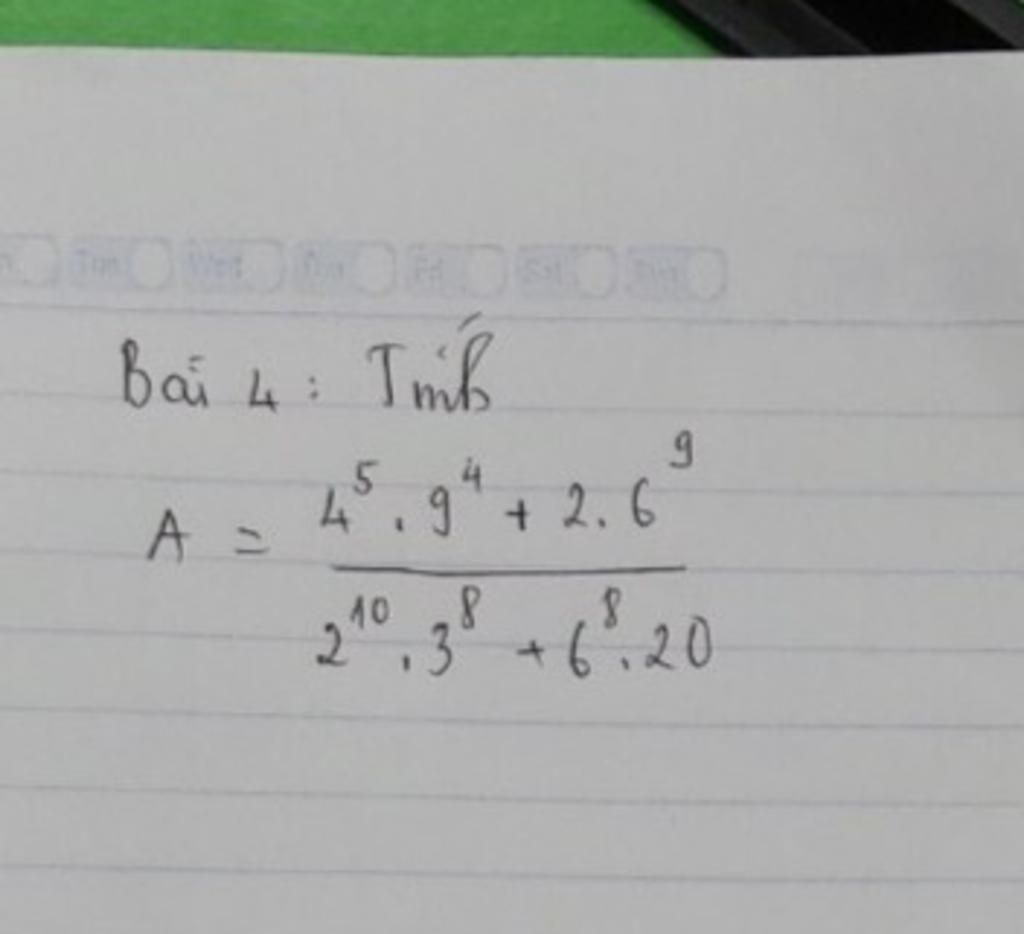 Tue Wed Thu Fri Sat Sun
Bài 4 : Tính
A = \frac{4^5 . 9^4 + 2 . 6^9}{2^{10} . 3^8 + 6^8 . 20}